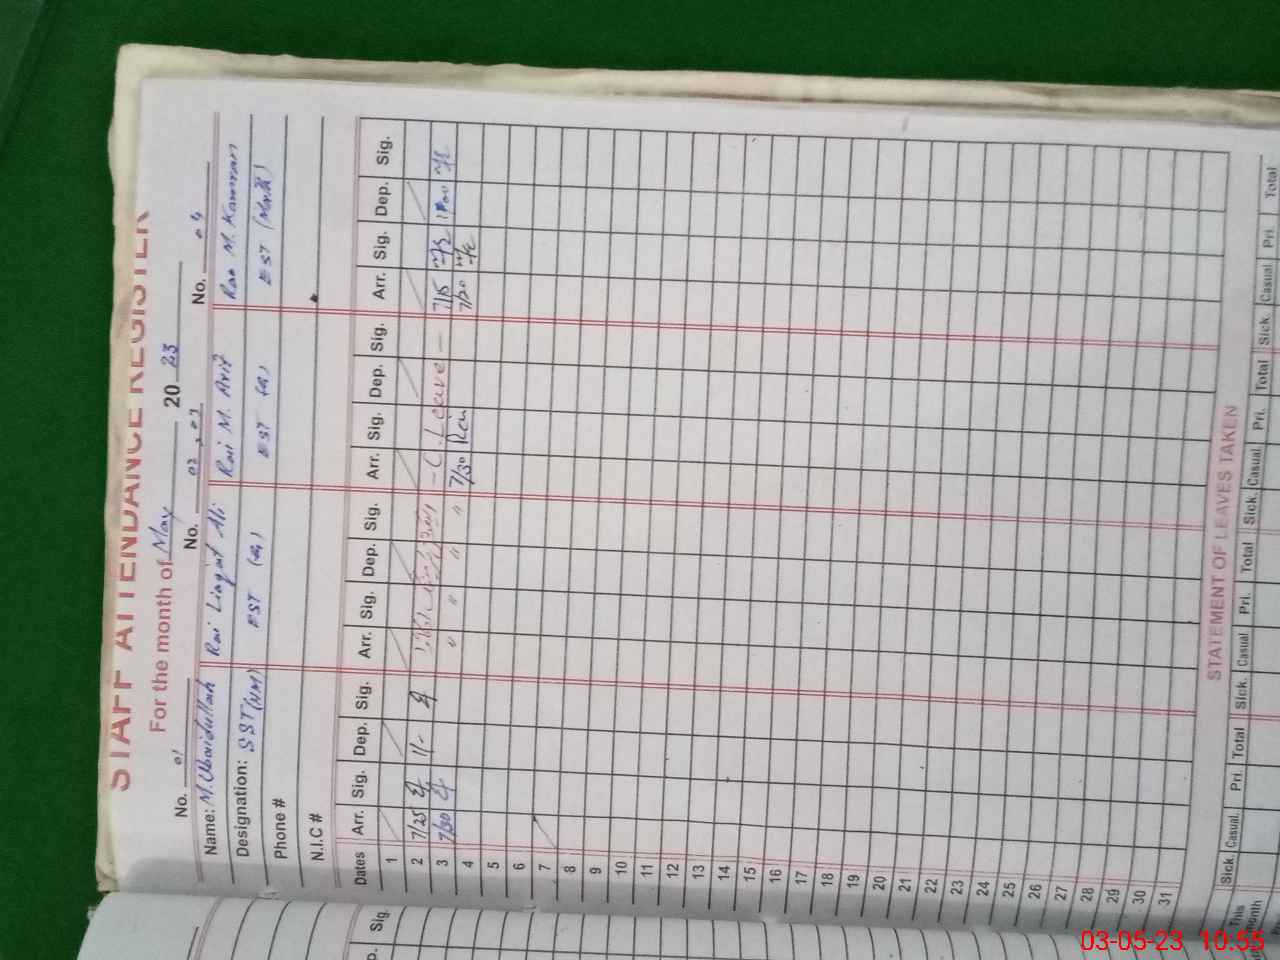 STAFF ATTENDANCE REGISTER
For the month of May 20 23
No. 01 No. 02 , 03 No. 04
Name: M. Ubaidullah Rai Liaqat Ali Rai M. Arif Rao M. Kamran
Designation: SST (NM) EST EST EST
Phone #
N.I.C #
Dates Arr. Sig. Dep. Sig. Arr. Sig. Dep. Sig. Arr. Sig. Dep. Sig. Arr. Sig. Dep. Sig.
1
2 7/25 11/- - C. Leave - 7/15
3 7/30 " " " " 7/30 7/20
4
5
6
7
8
9
10
11
12
13
14
15
16
17
18
19
20
21
22
23
24
25
26
27
28
29
30
31
STATEMENT OF LEAVES TAKEN
Sick. Casual. Pri. Total Sick. Casual. Pri. Total Sick. Casual. Pri. Total Sick. Casual. Pri. Total
This month
Sig.
03-05-23 10:55